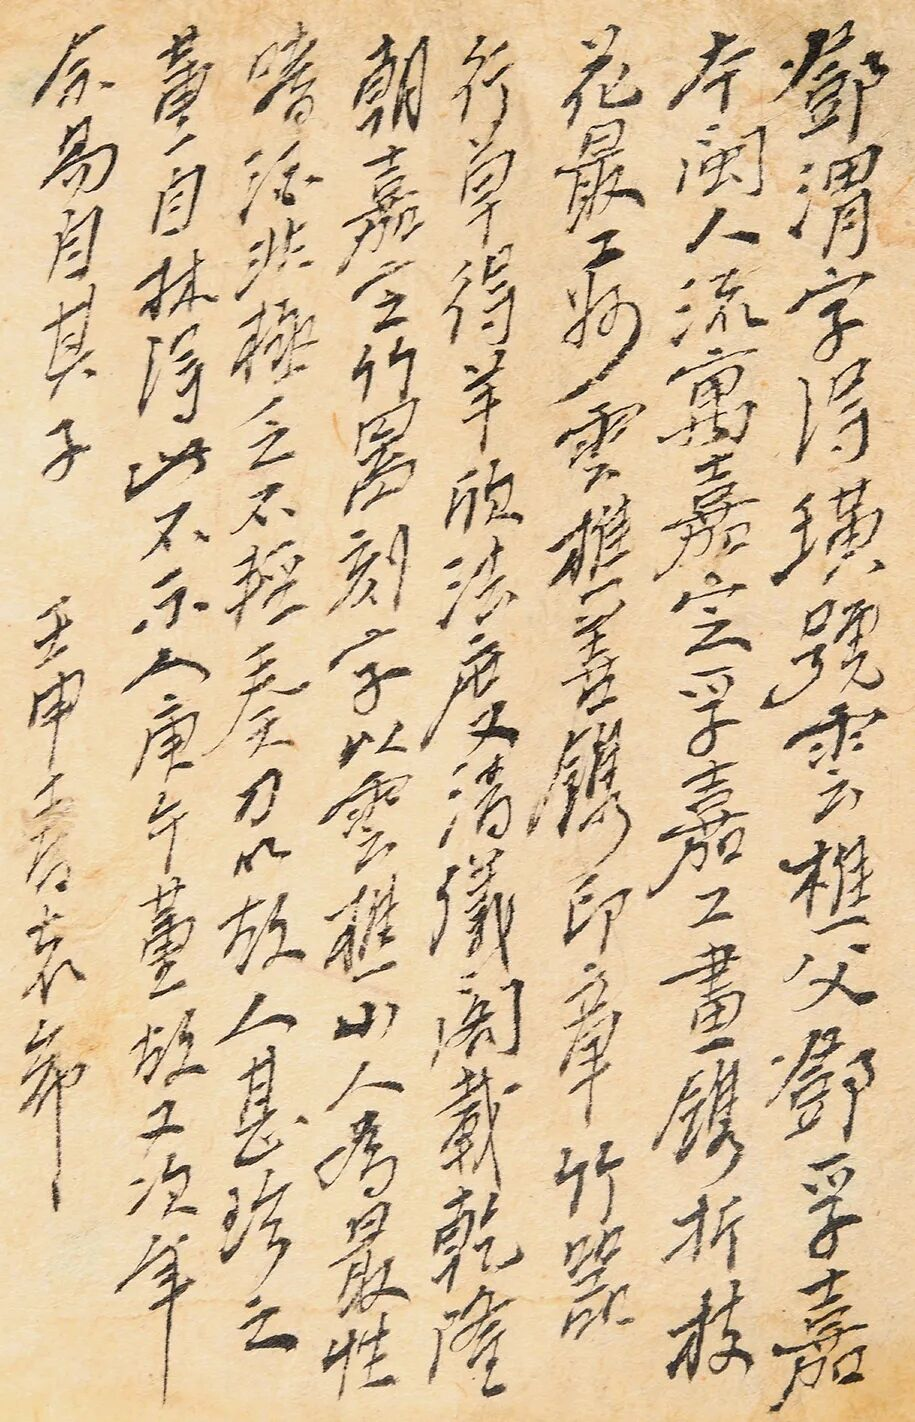 鄧渭字得璜號雲樵父鄧孚嘉
本閩人流寓嘉定孚嘉工畫鐫折枝
花最工妙雲樵善鐫印章竹器
行草得羊欣法度又清儀閣載乾隆
朝嘉定竹器刻字以雲樵山人為最性
嗜酒非極乏不輕奏刀以故人甚珍之
董自林得此不示人庚午董故又次年
余易自其子 壬申春袁